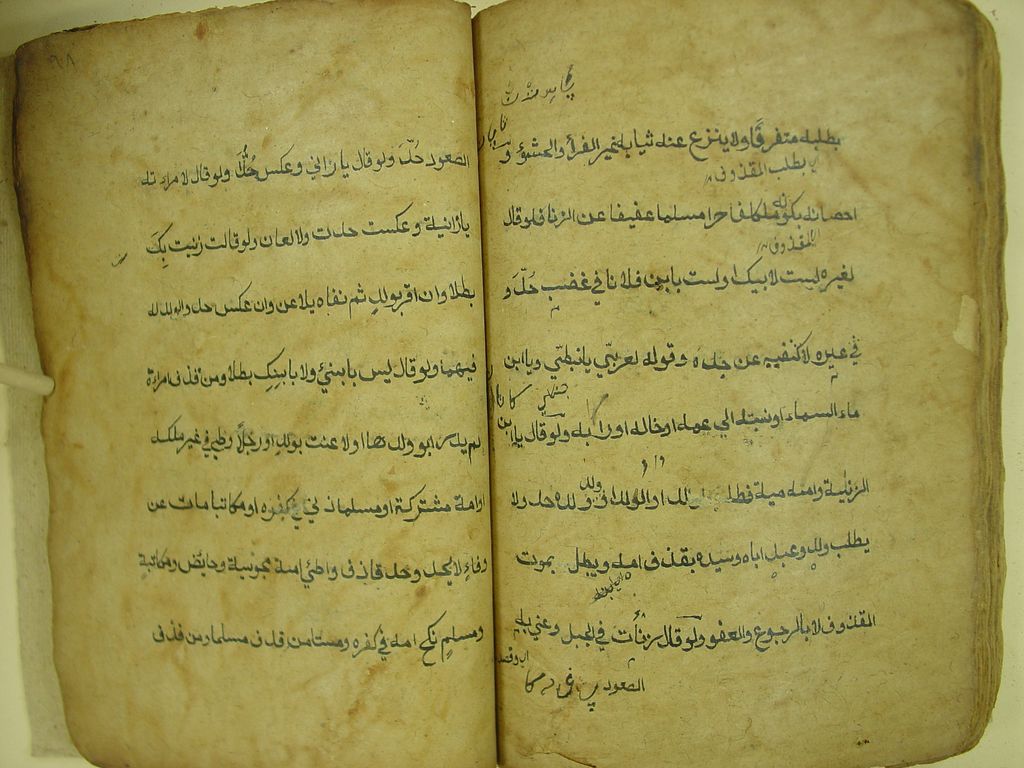 بطلبه متفرقا ولا ينزع عنه ثيابه غير الفرأ والحشو و
اي بطلب المقذوف
احصانه بكونه مكلفا حرا مسلما عفيفا عن الزنا فلو قال
المقذوف
لغيره لست لابيك او لست بابن فلان في غضب حُدَّ و
في غيره لا كنفيه عن جده وقوله لعربيّ يا نبطيّ ويا ابن
ماء السماء او نسبته الى عمه او خاله او رابه ولو قال يا ابن
الزنية وامه ميتة فطلب الولد او ولده حد ولا
يطلب ولد وعبد اباه وسيده بقذف امه ويبطل بموت
المقذوف لا بالرجوع والعفو ولو قال زنأت في الجبل وعنى به
الصعود
الصعود حُدَّ ولو قال يا زاني وعكس حُدَّا ولو قال لامراته
يا زانية وعكست حدت ولا لعان ولو قالت زنيت بكَ
بطلا وان اقر بولد ثم نفاه يلاعن وان عكس حد والولد له
فيهما ولو قال ليس بابني ولا بابنكِ بطلا ومن قذف امراة
لم يدر ابو ولدها او لاعنت بولد او رجلاً وطئ في غير ملكه
او امة مشتركة او مسلما زنى في كفره او مكاتبا مات عن
وفاءٍ لا يحد وحد قاذف واطئ امة مجوسية وحائض ومكاتبة
ومسلمٍ نكح امه في كفره ومستامن قذف مسلما ومن قذف